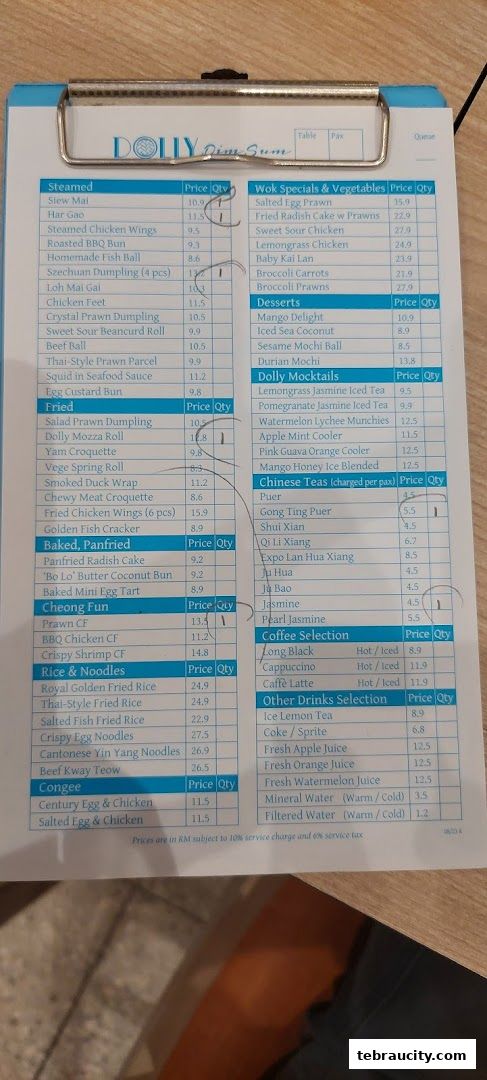 DOLLY Dim Sum
Table Pax Queue
Steamed Price Qty
Siew Mai 10.9 1
Har Gao 11.5 1
Steamed Chicken Wings 9.5
Roasted BBQ Bun 9.3
Homemade Fish Ball 8.6
Szechuan Dumpling (4 pcs) 1
Loh Mai Gai 10.3
Chicken Feet 11.5
Crystal Prawn Dumpling 10.5
Sweet Sour Beancurd Roll 9.9
Beef Ball 10.5
Thai-Style Prawn Parcel 9.9
Squid in Seafood Sauce 11.2
Egg Custard Bun 9.8
Fried Price Qty
Salad Prawn Dumpling 10.5
Dolly Mozza Roll 12.8 1
Yam Croquette 9.8
Vege Spring Roll 8.3
Smoked Duck Wrap 11.2
Chewy Meat Croquette 8.6
Fried Chicken Wings (6 pcs) 15.9
Golden Fish Cracker 8.9
Baked, Panfried Price Qty
Panfried Radish Cake 9.2
'Bo Lo' Butter Coconut Bun 9.2
Baked Mini Egg Tart 8.9
Cheong Fun Price Qty
Prawn CF 13.5 1
BBQ Chicken CF 11.2
Crispy Shrimp CF 14.8
Rice & Noodles Price Qty
Royal Golden Fried Rice 24.9
Thai-Style Fried Rice 24.9
Salted Fish Fried Rice 22.9
Crispy Egg Noodles 27.5
Cantonese Yin Yang Noodles 26.9
Beef Kway Teow 26.5
Congee Price Qty
Century Egg & Chicken 11.5
Salted Egg & Chicken 11.5
Wok Specials & Vegetables Price Qty
Salted Egg Prawn 35.9
Fried Radish Cake w Prawns 22.9
Sweet Sour Chicken 27.9
Lemongrass Chicken 24.9
Baby Kai Lan 23.9
Broccoli Carrots 21.9
Broccoli Prawns 27.9
Desserts Price Qty
Mango Delight 10.9
Iced Sea Coconut 8.9
Sesame Mochi Ball 8.5
Durian Mochi 13.8
Dolly Mocktails Price Qty
Lemongrass Jasmine Iced Tea 9.5
Pomegranate Jasmine Iced Tea 9.9
Watermelon Lychee Munchies 12.5
Apple Mint Cooler 11.5
Pink Guava Orange Cooler 12.5
Mango Honey Ice Blended 12.5
Chinese Teas (charged per pax) Price Qty
Puer 4.5
Gong Ting Puer 5.5 1
Shui Xian 4.5
Qi Li Xiang 6.7
Expo Lan Hua Xiang 8.5
Ju Hua 4.5
Ju Bao 4.5
Jasmine 4.5 1
Pearl Jasmine 5.5
Coffee Selection Price Qty
Long Black Hot / Iced 8.9
Cappuccino Hot / Iced 11.9
Caffè Latte Hot / Iced 11.9
Other Drinks Selection Price Qty
Ice Lemon Tea 8.9
Coke / Sprite 6.8
Fresh Apple Juice 12.5
Fresh Orange Juice 12.5
Fresh Watermelon Juice 12.5
Mineral Water (Warm / Cold) 3.5
Filtered Water (Warm / Cold) 1.2
Prices are in RM subject to 10% service charge and 6% service tax
tebraucity.com